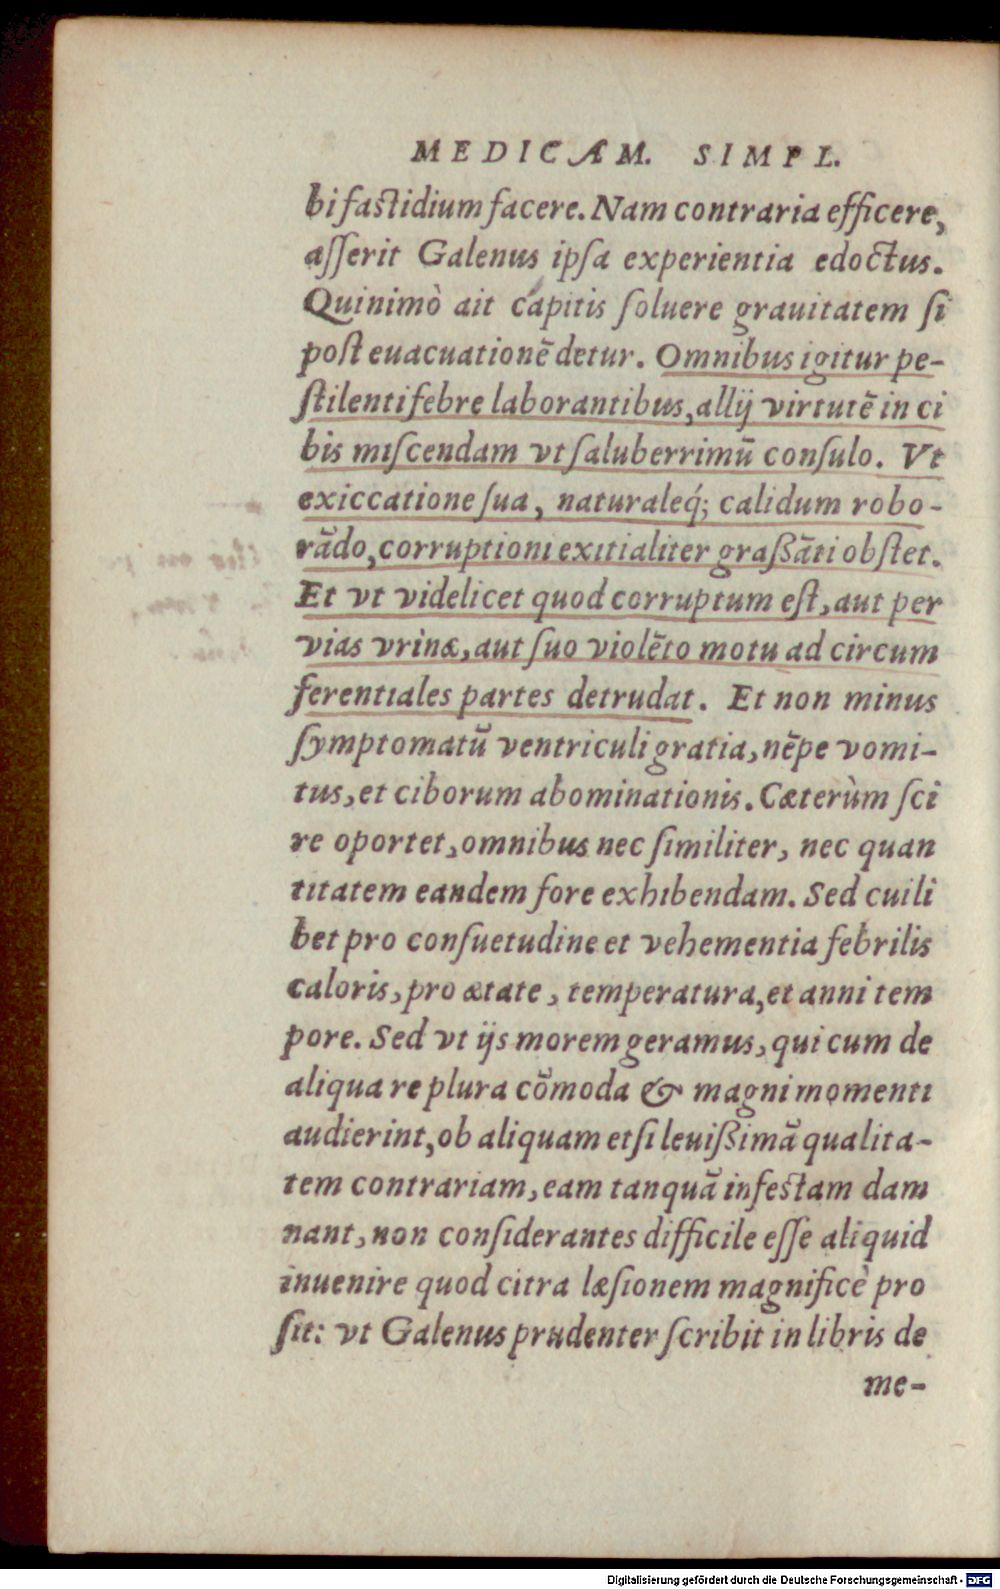 MEDICAM. SIMPL.
bi fastidium facere. Nam contraria efficere,
asserit Galenus ipsa experientia edoctus.
Quinimò ait capitis soluere grauitatem si
post euacuationē detur. Omnibus igitur pe-
stilenti febre laborantibus, allij virtutē in ci
bis miscendam vt saluberrimū consulo. Vt
exiccatione sua, naturaleq́; calidum robo-
rādo, corruptioni exitialiter graßāti obstet.
Et vt videlicet quod corruptum est, aut per
vias vrinæ, aut suo violēto motu ad circum
ferentiales partes detrudat. Et non minus
symptomatū ventriculi gratia, nēpe vomi-
tus, et ciborum abominationis. Cæterùm sci
re oportet, omnibus nec similiter, nec quan
titatem eandem fore exhibendam. Sed cuili
bet pro consuetudine et vehementia febrilis
caloris, pro ætate, temperatura, et anni tem
pore. Sed vt ijs morem geramus, qui cum de
aliqua re plura cōmoda & magni momenti
audierint, ob aliquam etsi leuißimā qualita-
tem contrariam, eam tanquā infestam dam
nant, non considerantes difficile esse aliquid
inuenire quod citra læsionem magnificè pro
sit: vt Galenus prudenter scribit in libris de
me-
Digitalisierung gefördert durch die Deutsche Forschungsgemeinschaft - DFG